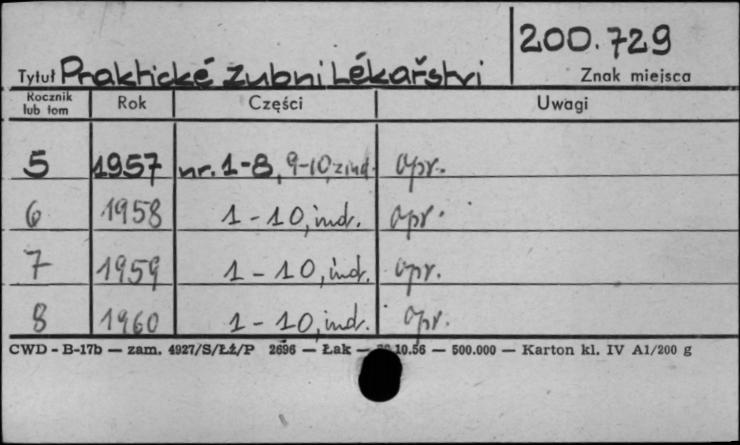 200.729
Tytuł Praktické zubni Lékařstvi Znak miejsca
Rocznik lub tom Rok Części Uwagi
5 1957 nr. 1-8, 9-10, z ind. opr.
6 1958 1-10, ind. opr.
7 1959 1-10, ind. opr.
8 1960 1-10, ind. opr.
CWD - B-17b — zam. 4927/S/ŁŻ/P 2696 — Łak — 10.56 — 500.000 — Karton kl. IV A1/200 g